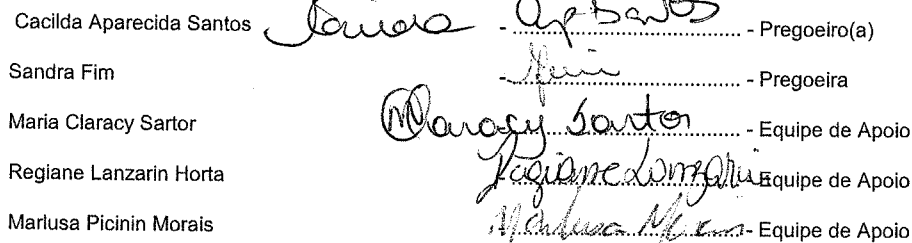 Cacilda Aparecida Santos - Ap Santos - Pregoeiro(a)
Sandra Fim - - Pregoeira
Maria Claracy Sartor M Claracy Sartor - Equipe de Apoio
Regiane Lanzarin Horta Regiane Lanzarin Equipe de Apoio
Marlusa Picinin Morais Marlusa - Equipe de Apoio